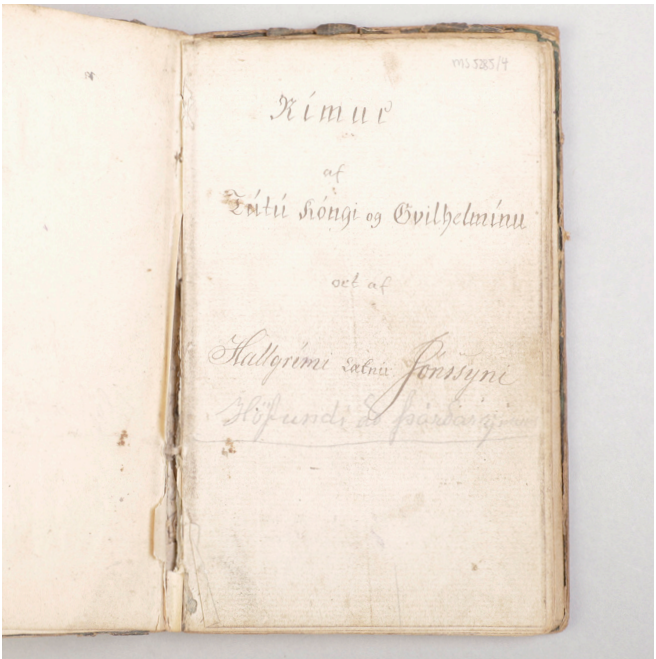 MS 5285/4
Rímur
af
Tútú kóngi og Gvilhelmínu
ort af
Hallgrími Læknir Jónssyni
Höfundi að